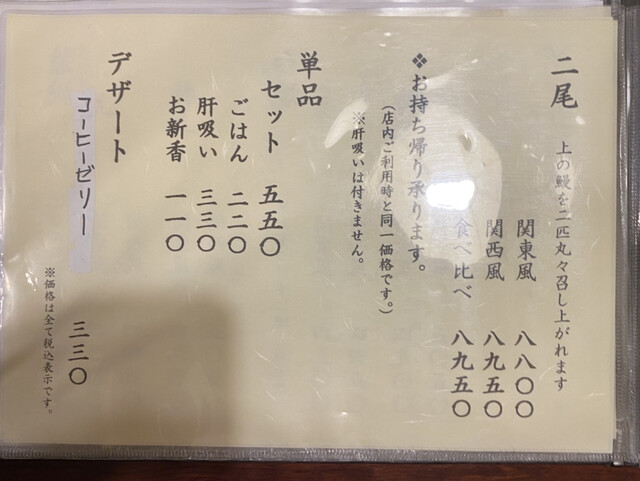 二尾
上の鰻を二匹丸々召し上がれます
関東風 八八〇〇
関西風 八九五〇
食べ比べ 八九五〇
❖お持ち帰り承ります。
(店内ご利用時と同一価格です。)
※肝吸いは付きません。
単品
セット 五五〇
ごはん 二二〇
肝吸い 三三〇
お新香 一一〇
デザート
コーヒーゼリー 三三〇
※価格は全て税込表示です。